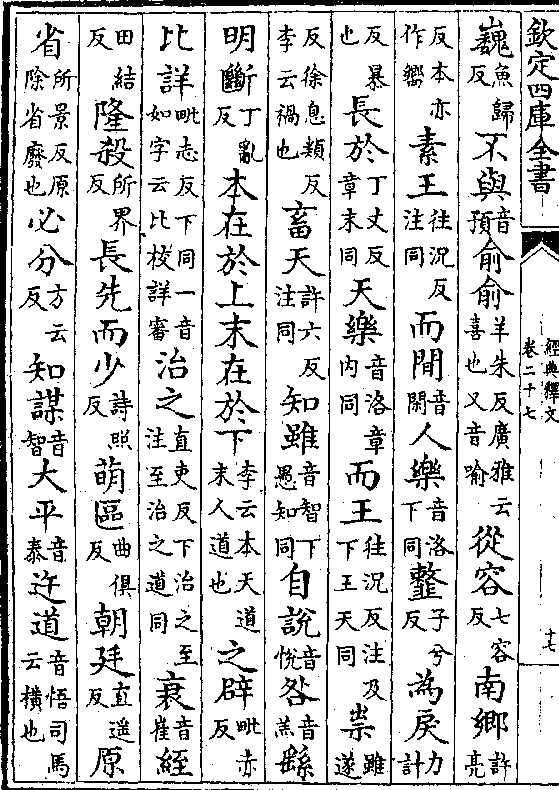 欽定四庫全書
經典釋文
卷二十七
十七
巍魚歸反不與音預俞俞羊朱反廣雅云喜也又音喻從容七容反南鄉許亮
反本亦作嚮素王往況反注同而閒音閑人樂音洛下同𩐋子兮反為戾力計
反暴也長於丁丈反章末同天樂音洛章內同而王往況反注及下王天同祟雖遂
反徐息類反李云禍也畜天許六反注同知雖音智下愚知同自說音悅咎音羔繇
明斷丁亂反本在於上末在於下李云本天道末人道也之辟毗赤反
比詳毗志反下同一音如字云比校詳審治之直吏反下治之至注至治之道同衰音崔絰
田結反隆殺所界反長先而少詩照反萌區曲俱反朝廷直遥反原
省所景反原除省廢也必分方云反知謀音智大平音泰迕道音悟司馬云横也